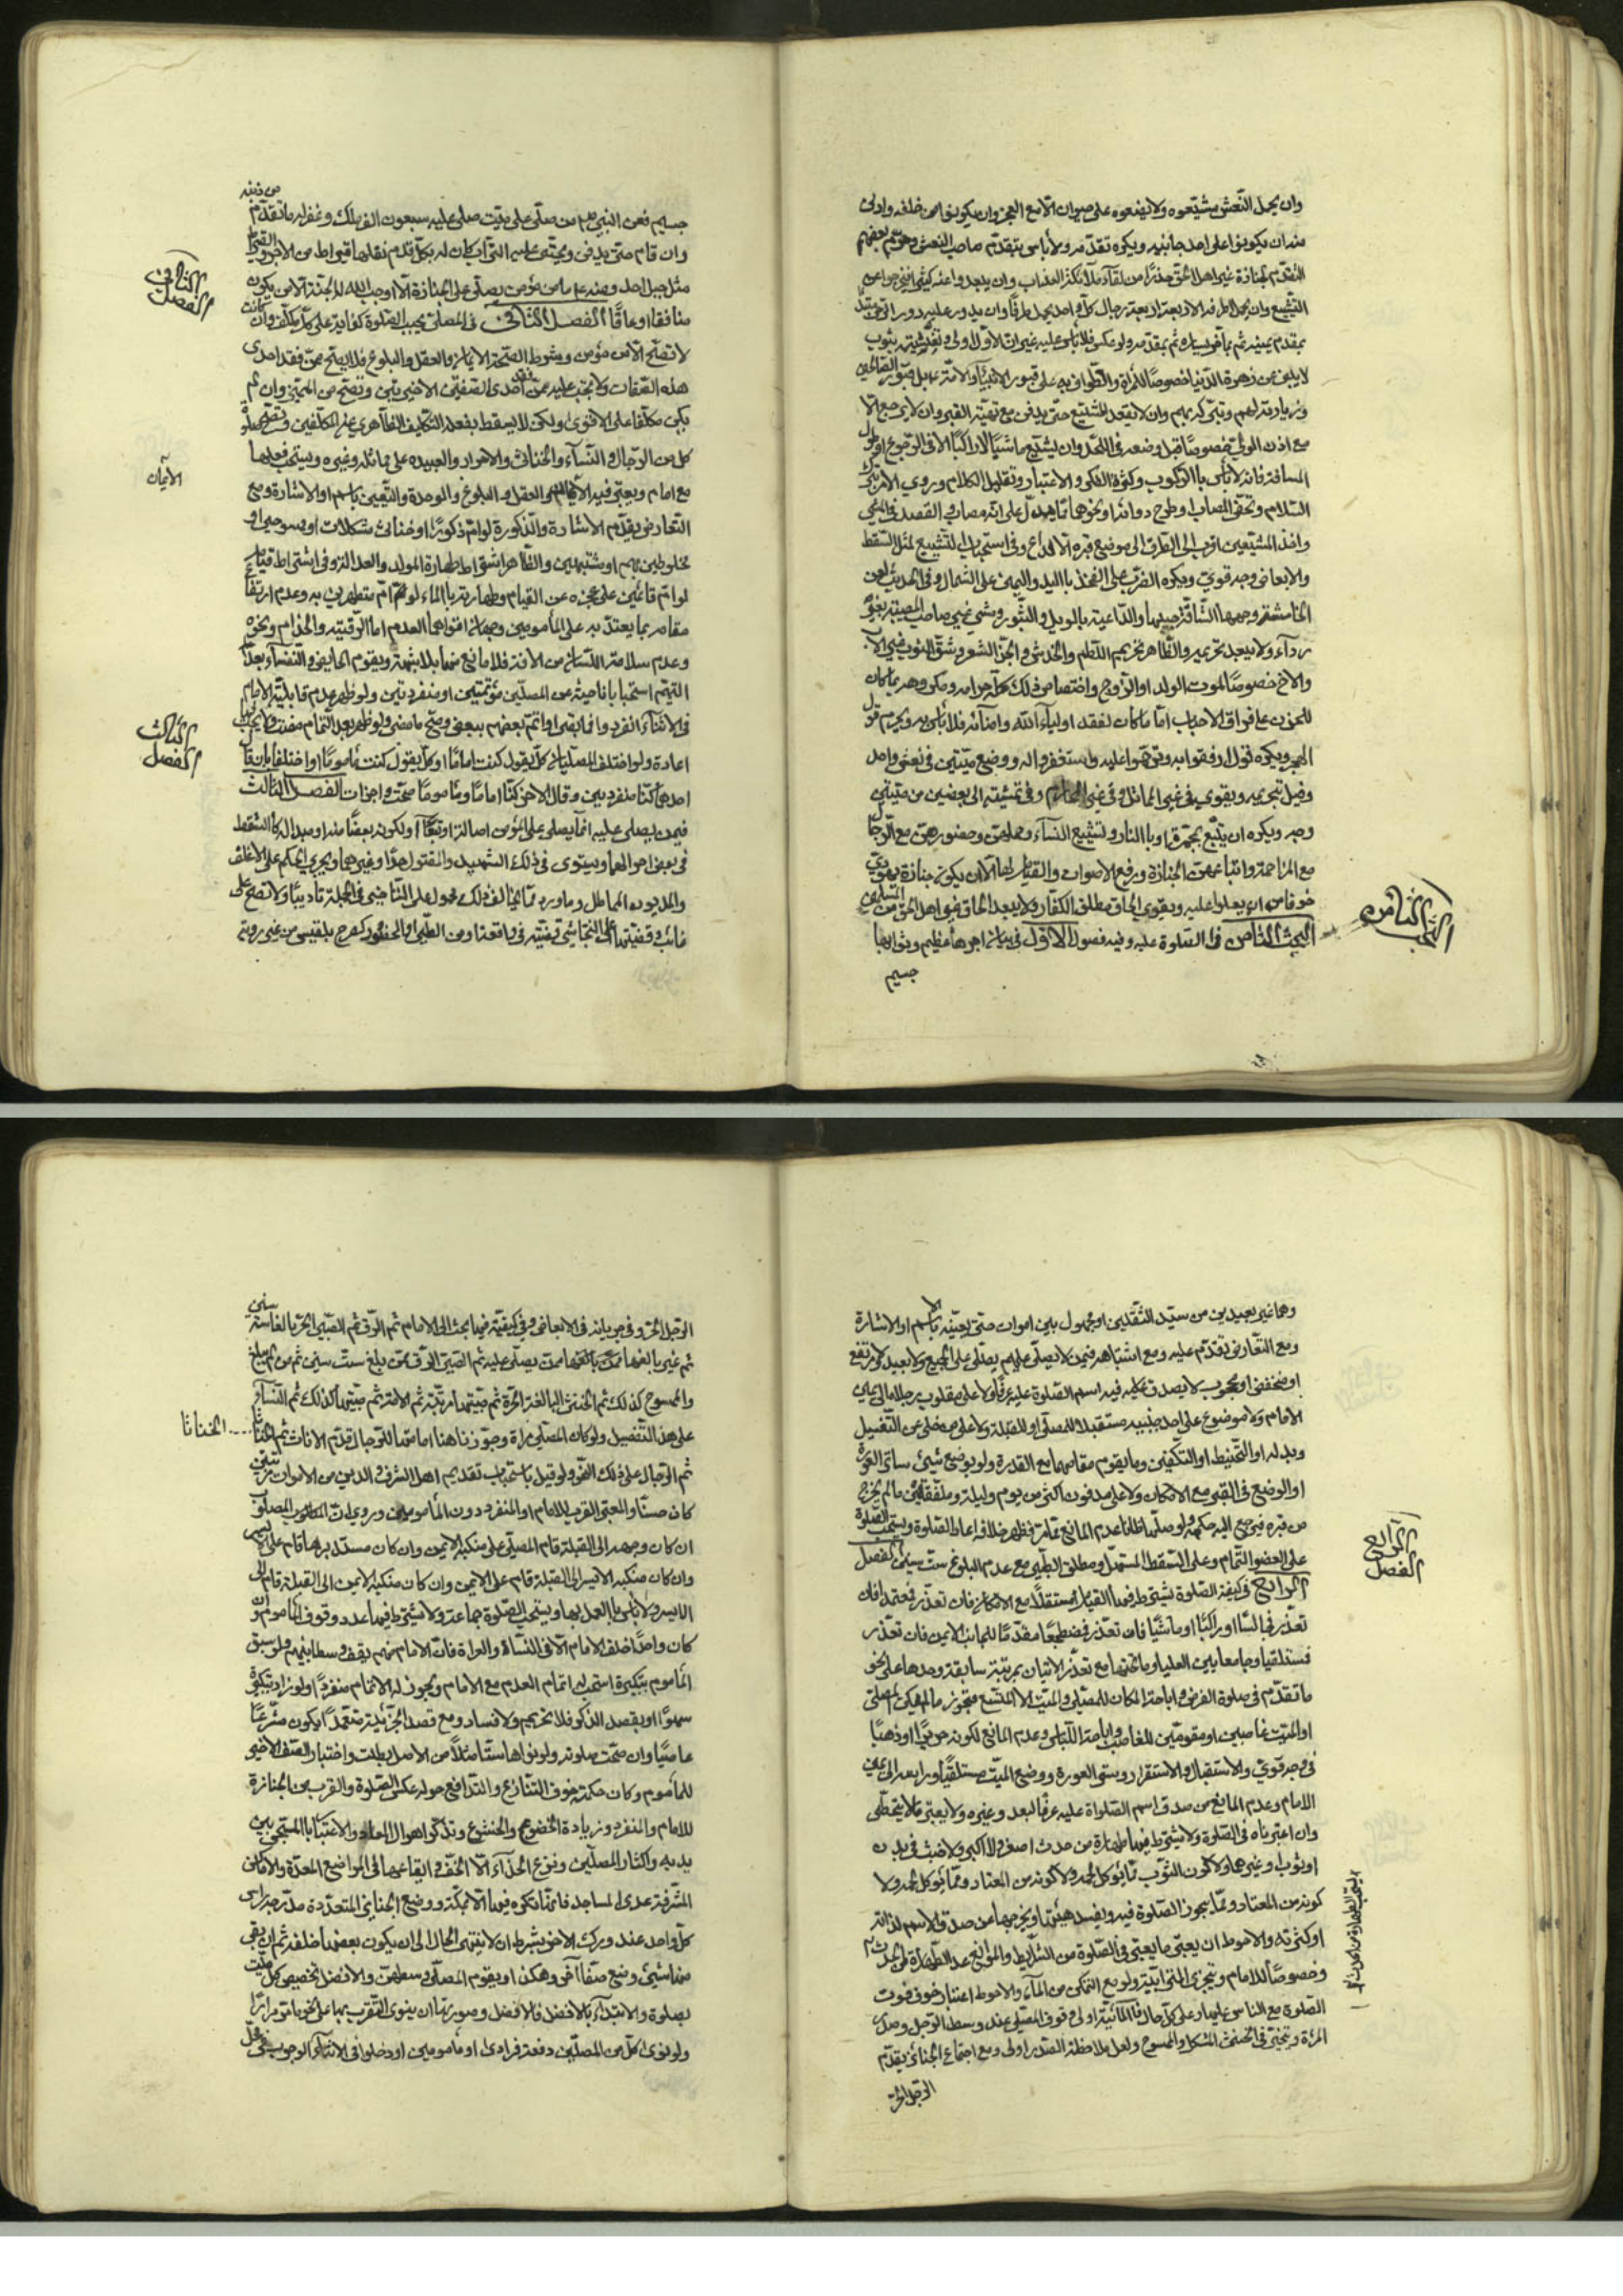 وان يحمل النّعش مشيّعوه ولا يضعوه على حيوان الّا مع العجز وان يكونوا من خلفه واولى
منه ان يكونوا على احد جانبيه ويكره تقدّمه ولا بأس بتقدّم صاحب النعش
التقدّم لجنازة غير اهل الحقّ حذرًا من لقاء ملائكة العذاب وان يبعد
التشييع وان يحمل اطرافه الاربعة اربعة رجال كلّ واحد يحمل طرفًا وان يدور عليه دور الرّحى
بمقدم يمينه ثم بمؤخر يساره ثم بمقدّمه ولو عكس فلا بأس عليه غير انّ الاوّل اولى
لا يلبق من زهرة الدّنيا خصوصًا للمرأة والطّواف به على قبور الانبياء والائمّة
وزيارته لهم وتبرّكه بهم وان لا يقعد المشيّع حتّى يدفن مع تهيّئة القبر وان لا يرجع الّا
مع اذن الولي خصوصًا قبل وضعه في اللحد وان يشيّع ماشيًا لا راكبًا الّا في الرّجوع او طول
المسافة فانّه لا بأس بالركوب وكثرة الفكر والاعتبار وتقليل الكلام وروي الامر بترك
السّلام وتحفّي المصاب وطرح ردائه او نحوهما ممّا يدلّ على انّه مصاب والقصد في المشي
واخذ المشيّعين اقرب الى الطرق الى موضع قبره وفي استحباب التشييع لمثل السّقط
والابعاض وجه قويّ ويكره الضّرب على الفخذ باليد واليمين على الشمال وفي الحديث لعن
الخامشة وجهها والشّاقّة جيبها والدّاعية بالويل والثّبور ومشي غير صاحب المصيبة بغير
رداء ولا يبعد تحريمه والظّاهر تحريم اللّطم والخدش وجزّ الشعر وشقّ الثوب في غير الاب
والاخ خصوصًا لموت الولد او الزّوج واختصاص ذلك كلّه بحرامه ومكروهه بما كان
للحزن على فراق الاحباب امّا ما كان لفقد اولياء الله وامنائه فلا بأس به ويحرم قول
الهجر ويكره قول ارفقوا به وترحّموا عليه واستغفروا له ووضع ميّتين في نعش واحد
وقيل بتحريمه ويقوى في غير المماثل وفي غير المحارم وفي تمشيته الى بعضين من ميّتين
وجه ويكره ان يتبع بمجمرة او بالنار وتشييع النساء وحملهنّ وحضورهنّ مع الرّجال
مع المزاحمة واتباعهنّ الجنازة ورفع الاصوات والقيام لها الّا ان يكون جنازة يهوديّ
خوفًا من ان يعلو عليه ويقوى الحاق مطلق الكفّار ولا يبعد الحاق غير اهل الحقّ من المسلمين
البحث الثامن في الصّلوة عليه وفيه فصول الاوّل في بيان اجرها عظيم وثوابها
جسيم
البحث الثامن
من ذنبه
جسيم فعن النبي ص من صلّى على ميّت صلّى عليه سبعون الف ملك وغفر له ما تقدّم
وان قام حتّى يدفن ويحثى عليه التّراب كان له بكلّ قدم نقلها قيراط من الاجر والقيراط
مثل جبل احد وعنه ع ما من مؤمن يصلّي على الجنازة الّا اوجب الله له الجنّة الّا ان يكون
منافقًا او عاقًّا الفصل الثاني في المصلّي يجب الصّلوة كفاية على كلّ مكلّف وان كانت
لا تصحّ الّا من مؤمن ويشرط الصّحة الايمان والعقل والبلوغ فلا يصحّ ممّن فقد احدى
هذه الصّفات ولا تجب عليه ممّن فقد احدى الصّفتين الاخيرتين وتصحّ من المميّز وان لم
يكن مكلّفًا على الاقوى ولكن لا يسقط بفعله التّكليف الظّاهري عن المكلّفين وتصحّ صلوة
كل من الرّجال والنّساء والخناثى والاحرار والعبيد على مماثله وغيره ويستحبّ فعلها
مع امام ويعتبر فيه الايمان والعقل والبلوغ والوحدة والتّعيين باسم او الاشارة ومع
التعارض يقدّم الاشارة والذّكورة لو امّ ذكورًا او خناثى مشكلات او ممسوحين او
مخلوطين بهم او مشتبهين والظّاهر اشتراط طهارة المولد والعدالة وفي اشتراط قيامه
لو امّ قائمين على عجزه عن القيام وطهارته بالماء لو امّ متطهّرين به وعدم ارتفاع
مقامه بما يعتدّ به على المأمومين وجهان اقواهما العدم امّا الرّقيّة والجذام ونحوه
وعدم سلامة اللّسان من الافة فلا مانع منها بلا شبهة ويقوم الحايض والنّفساء بعد
التيمّم استحبابًا ناحية عن المصلّين مؤتمّتين او منفردتين ولو ظهر عدم قابليّة الامام
في الاثناء انفردوا فيما بقي او ائتمّ بعضهم ببعض وصحّ ما مضى ولو ظهر بعد التّمام مضت ولا يجب
اعادة ولو اختلف المصلّيان كلّ يقول كنت امامًا او كلّ يقول كنت مأمومًا او اختلفا بان قال
احدهما كنّا منفردين وقال الاخر كنّا امامًا ومأمومًا صحّت واجزأت الفصل الثالث
فيمن يصلّى عليه انّما يصلّى على المؤمن اصالة او تبعًا او لكونه بعضًا منه او مبدأ له كالسّقط
في بعض احوالهما ويستوي في ذلك الشّهيد والمقتول حدًّا وغيرهما ويجري الحكم على الاغلف
والمديون المماطل وما ورد ممّا يخالف ذلك محمول على التّناخي في الجملة تأديبًا ولا تصحّ على
غائب وقضيّة النّجاشي قضيّة في واقعة او من الطّي او الحضور كفرج بلقيس من غير روية
الفصل الثاني
الايمان
الفصل الثالث
وهما غير بعيدين من سيّد الثّقلين او مجهول بين اموات حتّى يعيّنه بالاسم او الاشارة
ومع التّعارض تقدّم عليه ومع اشتباهه فيمن لا يصلّى عليهم يصلّى على الجميع ولا بعيد ولا مرتفع
او منخفض او محجوب لا يصدق عليه فيه اسم الصّلوة عليه عرفًا ولا على مقلوب رجلاه الى يمين
الامام ولا موضوع على احد جنبيه مستقبلًا للمصلّي او للقبلة ولا على من خلى عن التّغسيل
وبدله او التّحنيط او التّكفين وما يقوم مقامهما مع القدرة ولو بوضع شيئ ساتر العورة
او الوضع في القبر مع الامكان ولا على مدفون اكثر من يوم وليلة ما لم يخرج
من قبره فيرجع اليه حكمه ولو صلّى ظانًّا عدم المانع ثمّ ظهر خلافه اعاد الصّلوة ويستحبّ الصّلوة
على العضو التّمام وعلى السّقط المستهلّ ومطلق الطّفل مع عدم البلوغ ستّ سنين الفصل
الرّابع في كيفيّة الصّلوة يشترط فيها القيام مستقلًّا مع الامكان فان تعذّر فمعتمدًا فان
تعذّر فجالسًا او راكبًا او ماشيًا فان تعذّر فمضطجعًا مقدّمًا للجانب الايمن فان تعذّر
فمستلقيا وجامعا بين العليا وما تحتها مع تعذّر الاتيان بمرتبة سابقة وحدها على نحو
ما تقدّم في صلوة الفرض واباحة المكان للمصلّي والميّت
او الميّت غاصبين او مقومين للغاصب واباحة اللّباس وعدم المانع لكونه حريرًا او ذهبًا
في وجه قويّ والاستقبال والاستقرار وستر العورة ووضع الميّت مستلقيًا ورأسه الى يمين
الامام وعدم المانع من صدق اسم الصّلواة عليه عرفًا لبعد وغيره ولا يعتبر
وان اعتبرناه في الصّلوة ولا يشترط فيها طهارة من حدث اصغر ولا اكبر ولا خبث في بدن
او ثوب او غيرهما ولا كون الثّوب ممّا يؤكل لحمه ولا كونه من المعتاد
كونه من المعتاد وممّا يجوز الصّلوة فيه ويفسد هيئتها ويخرجها عن صدق الاسم لذاته
او كثرته والاحوط ان يعتبر ما يعتبر في الصّلوة من الشّرايط والموانع عد الطّهارة من الحدث
وخصوصًا للامام وتجزي التّرابيّة ولو مع التمكّن من الماء والاحوط اعتبار خوف فوت
الصّلوة مع الناس عليها وعلى كلّ حال فالمائيّة اولى ووقوف المصلّي عند وسط الرّجل وصدر
المرأة ويتخيّر في الخنثى المشكل والممسوح ولعل ملاحظة الصّدر اولى ومع اجتماع الجنائز يقدّم
الرّجل الحرّ
الفصل الرّابع
الرّجل الحرّ وفي جريانه في الابعاض وفي كيفيّته فيها بحث الى الامام ثم الرّق ثم الصّبي الحرّ بالغا ستّ سنين
ثم غير بالغها ممّن يصلّى عليه ثم الصّبي الرّق ممّن بلغ ستّ سنين ثم من لم يبلغ
والممسوح كذلك ثم الخنثى البالغة الحرّة ثم صبيّتها مرتّبة ثم الامة ثم صبيّتها كذلك ثم النّساء
على هذا التّفصيل ولو كان المصلّي مرأة وجوّزنا هنا امامتها للرّجال قدّم الاناث ثم الخناثا
ثم الرّجال على ذلك النّحو ولو قيل باستحباب تقديم اهل الشرف والدين من الاموات
كان حسنًا والمعتبر القرب للامام او المنفرد دون المأمومين وروي انّ المصلوب
ان كان وجهه الى القبلة قام المصلّي على منكبه الايمن وان كان مستدبرها قام على الايسر
وان كان منكبه الايسر الى القبلة قام على الايمن وان كان منكبه الايمن الى القبلة قام على
الايسر ولا بأس بالعمل بها ويستحب الصّلوة جماعة ولا يشترط فيها عدد ووقوف المأموم وان
كان واحدًا خلف الامام الّا في النّساء والعراة فانّ الامام منهم يقف وسطا بينهم ولو سبق
المأموم بتكبيرة استحب له اتمام العدد مع الامام ويجوز له الاتمام منفردًا ولو زاد تكبيرة
سهوًا او بقصد الذّكر فلا تحريم ولا فساد ومع قصد الجزئيّة متعمّدًا يكون مشرّعًا
عاصيًا وان صحّت صلوته ولو نواها ستّا مثلًا من الاصل بطلت واختيار الصّف الاخير
للمأموم وكان حكمته خوف التّنازع والتدافع حوله عكس الصّلوة والقرب من الجنازة
للامام والمنفرد وزيادة الخضوع والخشوع وتذكّر اهوال المعاد والاعتبار بالمسجّى بين
يديه واكثار المصلّين ونزع الحذاء الّا الخف وايقاعها في المواضع المعدّة والاماكن
المشرّفة عدى المساجد فانّها تكره فيها الّا بمكّة ووضع الجنائز المتعدّدة مدرّجة راس
كلّ واحد عند ورك الاخر بشرط ان لا ينتهي الحال الى ان يكون بعضها خلفه ثم ان بقي
منها شيئ وضع صفّا اخر وهكذا ويقوم المصلّي وسطهنّ والافضل تخصيص كل ميّت
بصلوة والابتداء بالافضل فالافضل وصورتها ان ينوي التقرّب بها على نحو ما مرّ مرارًا
ولو نوى كلّ من المصلّين دفعة فرادى او مأمومين او دخلوا في الاثناء
الخناثا